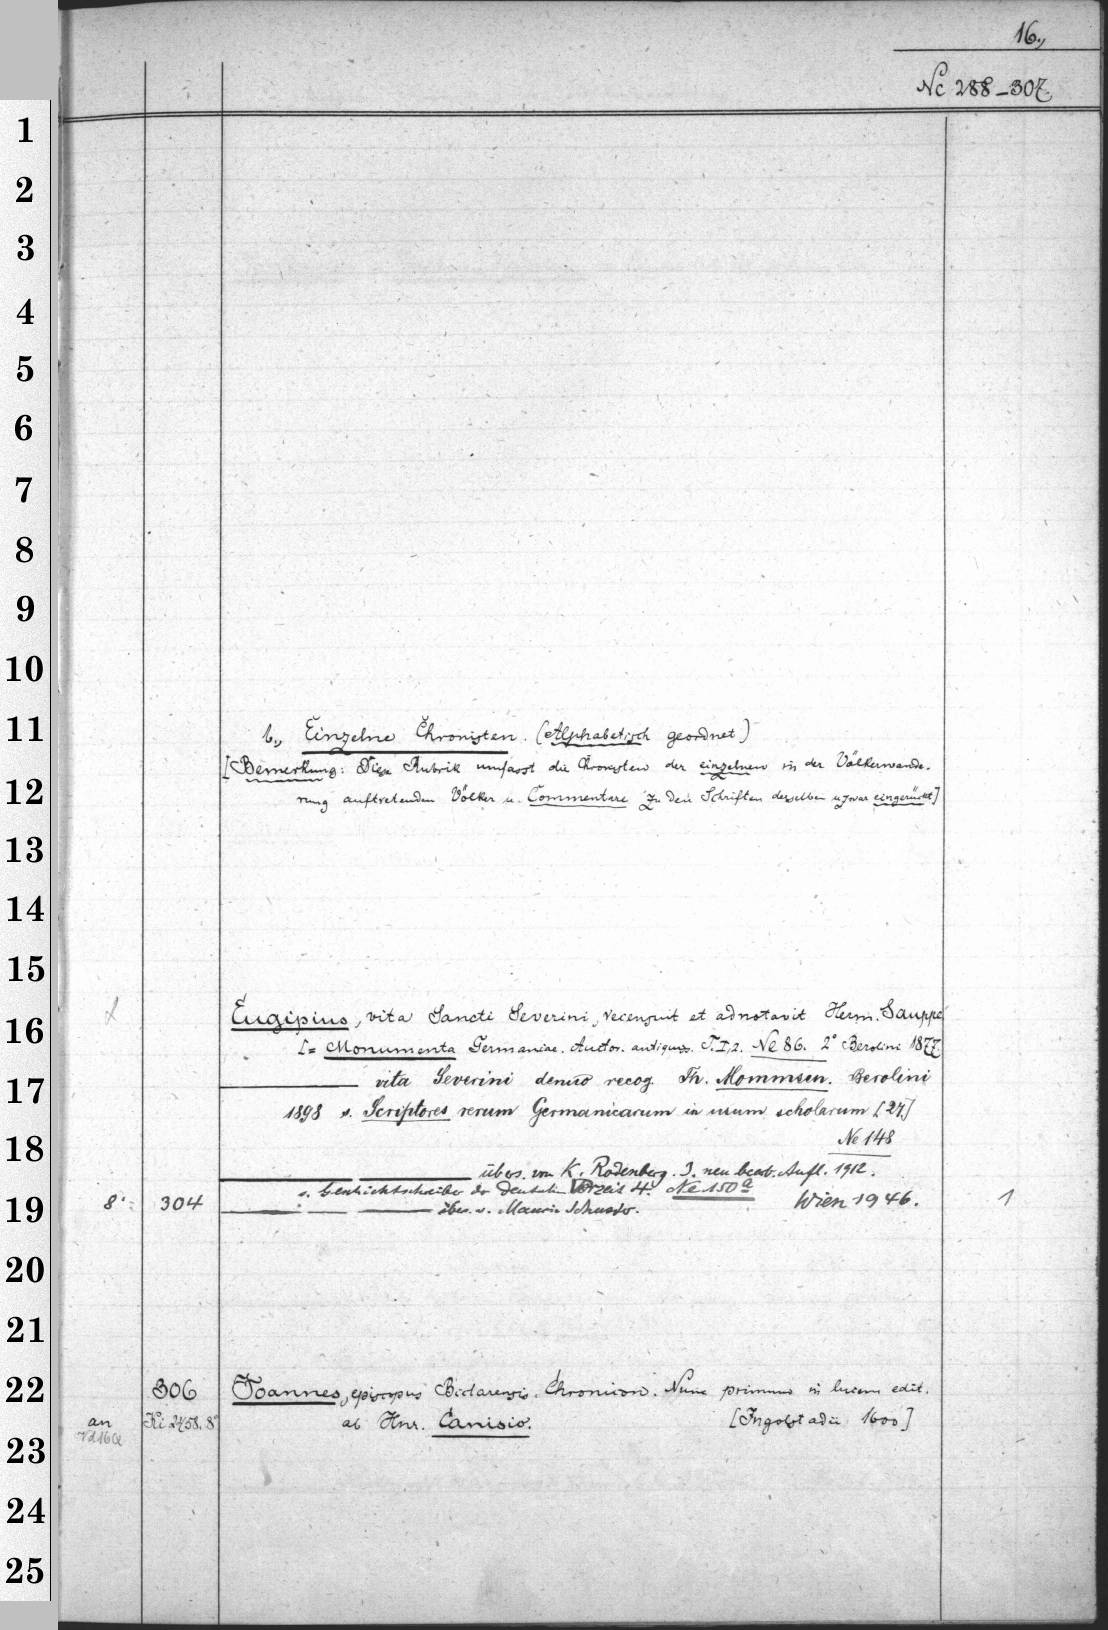 16.,
Nc 288-307.
1
2
3
4
5
6
7
8
9
10
11
b., Einzelne Chronisten. (Alphabetisch geordnet)
[Bemerkung: Diese Rubrik umfasst die Chronisten der einzelnen in der Völkerwande-
12
rung auftretenden Völker u. Commentare zu den Schriften derselben u. zwar eingerückt]
13
14
15
16
Eugipius, vita Sancti Severini, recensuit et adnotavit Herm. Sauppe
[= Monumenta Germaniae. Auctor. antiquiss. T.I,2. Ne 86. 2° Berolini 1877
17
vita Severini denuo recog. Th. Mommsen. Berolini
1898 v. Scriptores rerum Germanicarum in usum scholarum [27.]
18
Ne 148
übers. von K. Rodenberg. 3. neu bearb. Aufl. 1912.
s. Geschichtschreiber der deutschen Vorzeit 4. Ne 150a
19
8°: 304 über. v. Mauriz Schuster. Wien 1946. 1
20
21
22
306 Joannes, episcopus Biclarensis. Chronicon. Nunc primum in lucem edit.
an Ki 2458. 8° ab Hnr. Canisio. [Ingolstadii 1600]
23
24
25